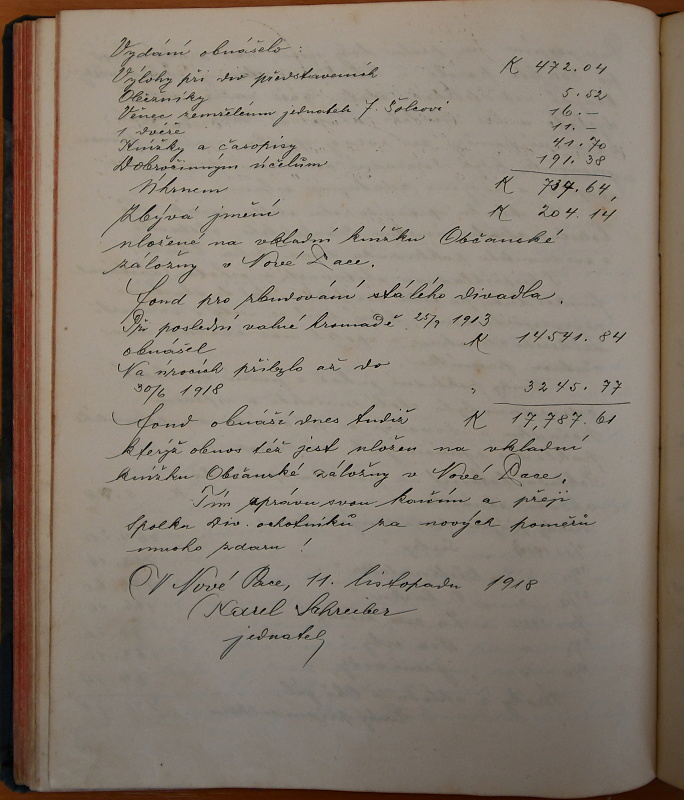 Vydání obnášelo:
Výlohy při div představeních K 472.04
Oběžníky 5.52
Věnec zemřelému jednateli J. Šolcovi 16.—
1 dvéře 11.—
Knížky a časopisy 41.70
Dobročinným účelům 191.38
Úhrnem K 737.64
Zbývá jmění K 204.14
uložené na vkladní knížku Občanské
záložny v Nové Pace.
Fond pro zbudování stálého divadla.
Při poslední valné hromadě 25/9 1913
obnášel K 14541.84
Na úrocích přibylo až do
30/6 1918 " 3245.77
Fond obnáší dnes tudíž K 17,787.61
kterýž obnos též jest uložen na vkladní
knížku Občanské záložny v Nové Pace.
Tím zprávu svou končím a přeji
Spolku div. ochotníků za nových poměrů
mnoho zdaru!
V Nové Pace, 11. listopadu 1918
Karel Schreiber
jednatel